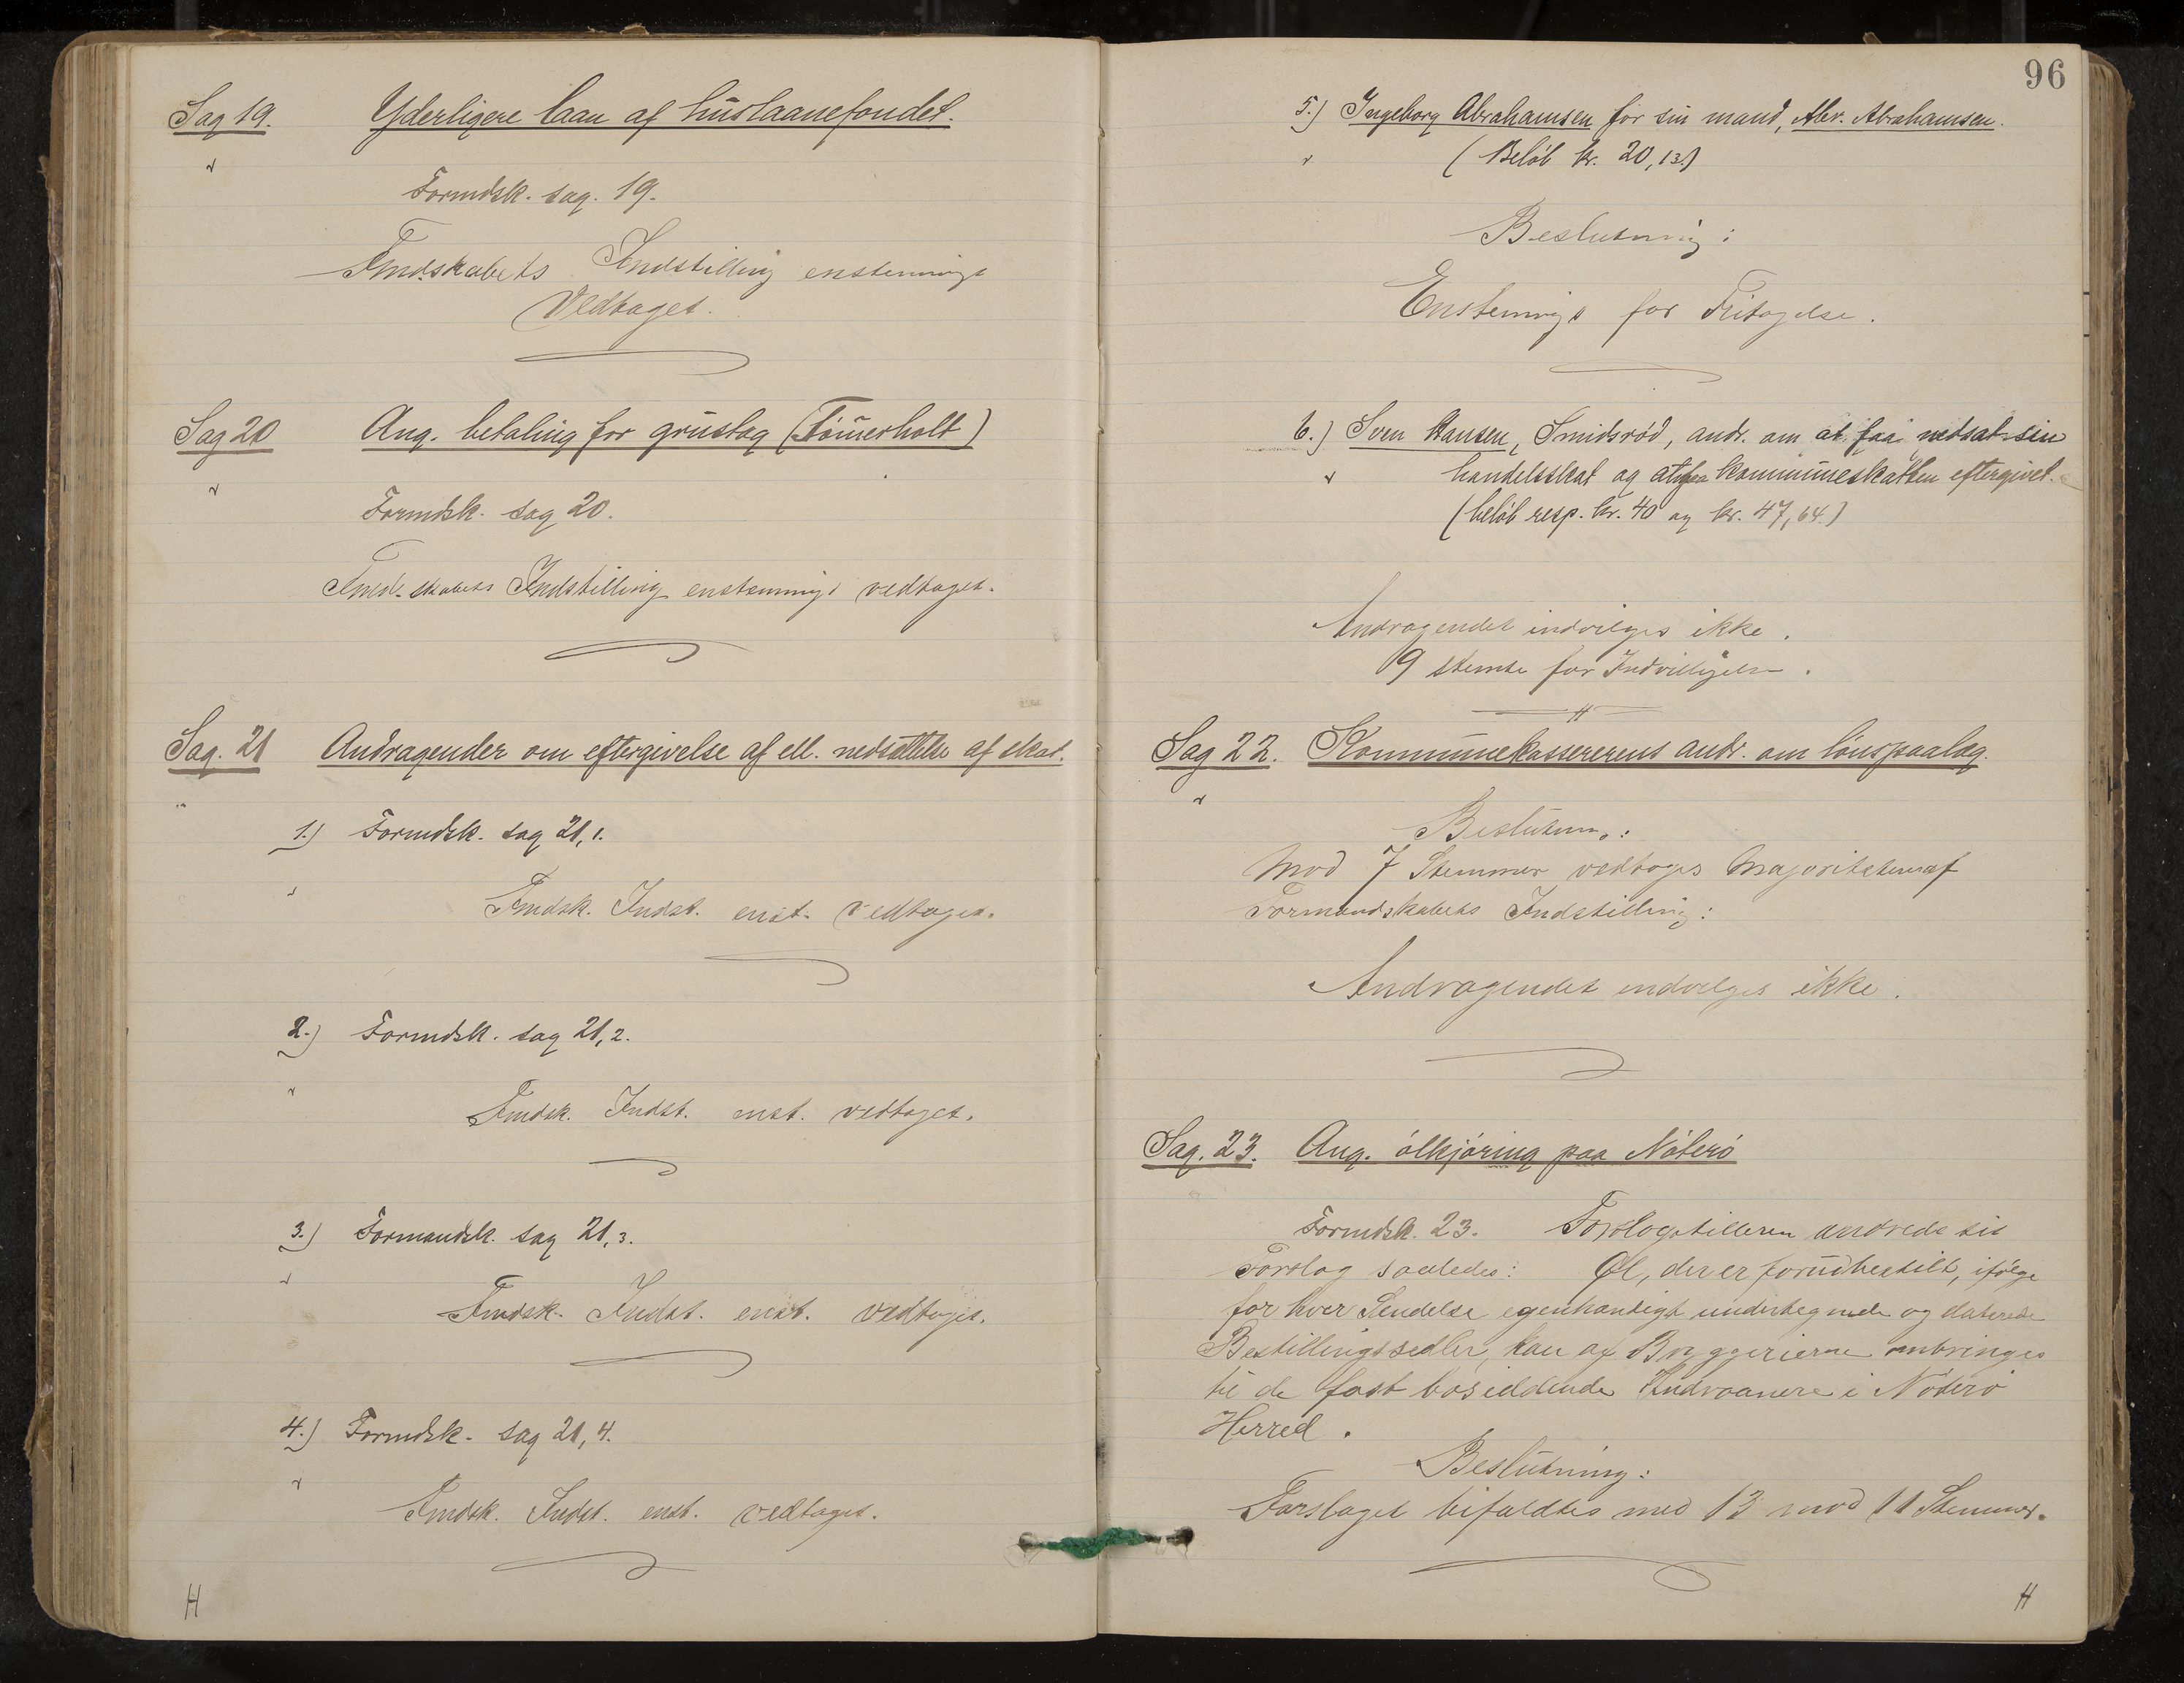 Sag 19. Yderligere laan af huslaanefondet.
Formdsk. sag. 19.
Fmdskabets Indstilling enstemmigt
Vedtaget.
Sag 20 Ang. betaling for grustag (Tömerholt)
Formdsk. sag 20.
Fmdskabets Indstilling enstemmigt vedtaget.
Sag. 21 Andragender om eftergivelse af ell. nedsættelse af skat.
1.) Formdsk. sag 21,1.
Fmdsk. Indst. enst. vedtaget.
2.) Formdsk. sag 21,2.
Fmdsk. Indst. enst. vedtaget.
3.) Formandsk. sag 21,3.
Fmdsk. Indst. enst. vedtaget.
4.) Formdsk. sag 21,4.
Fmdsk. Indst. enst. vedtaget.
H
96
5.) Ingeborg Abrahamsen for sin mand, Abr. Abrahamsen.
(Beløb kr. 20,13.)
Beslutning:
Enstemmigt for Fritagelse.
6.) Sven Hansen, Smidsrød, andr. om at faa nedsat sin
handelsskat og at faa kommuneskatten eftergivet.
(beløb resp. kr. 40 og kr. 47,64.)
Andragendet indvilges ikke.
9 stemte for Indvilligelse.
Sag 22. Kommunekassererens andr. om lönspaalæg.
Beslutn.:
Mod 7 Stemmer vedtoges Majoriteten af
Formandskabets Indstilling:
Andragendet indvilges ikke.
Sag. 23. Ang. ölkjöring paa Nöterö
Formdsk. 23. Forslagstilleren ændrede sit
Forslag saaledes: Øl, der er forudbestilt, ifölge
for hver Sendelse egenhændigt undertegnede og daterede
Bestillingssedler, kan af Bryggerierne ombringes
til de fast bosiddende Indvaanere i Nöterö
Herred.
Beslutning:
Forslaget bifaldtes med 13 mod 11 Stemmer.
H